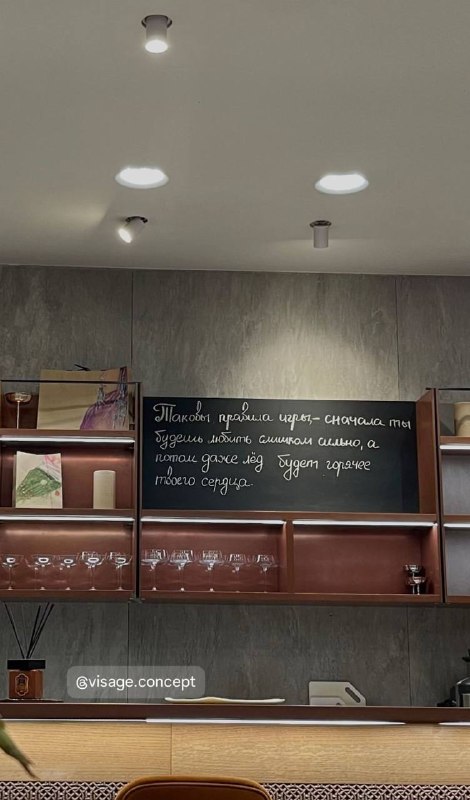 Таковы правила игры,- сначала ты
будешь любить слишком сильно, а
потом даже лёд будет горячее
твоего сердца.
@visage.concept